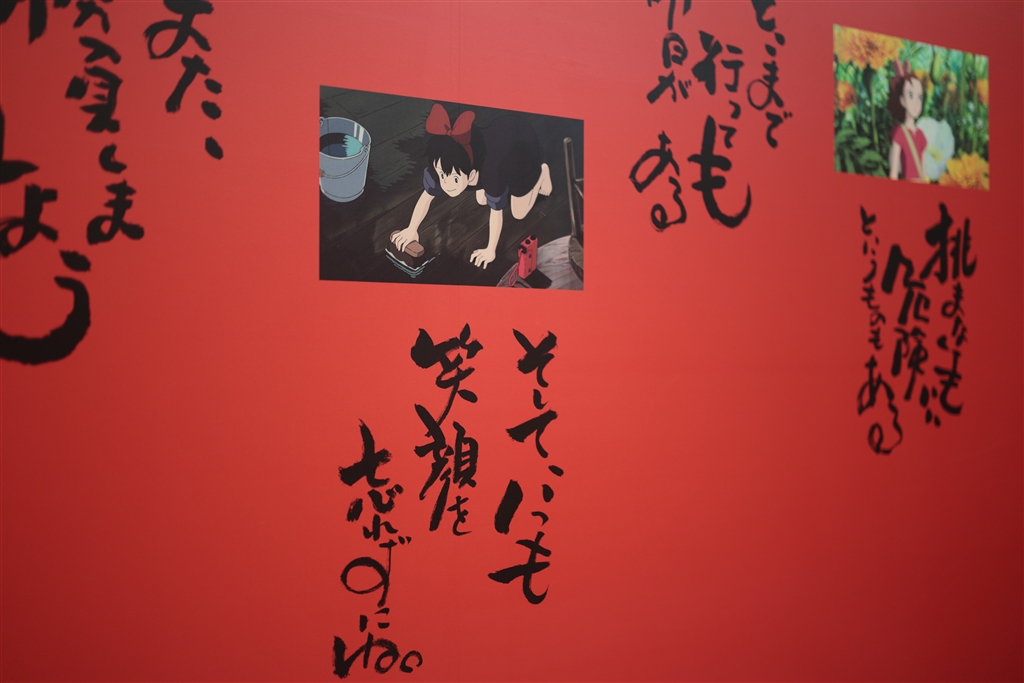 挑まなくてもいい
危険
というものもある
どこまで
行っても
明日がある
そして、いつも
笑顔を
忘れずにね。
また、
負しま
しょう